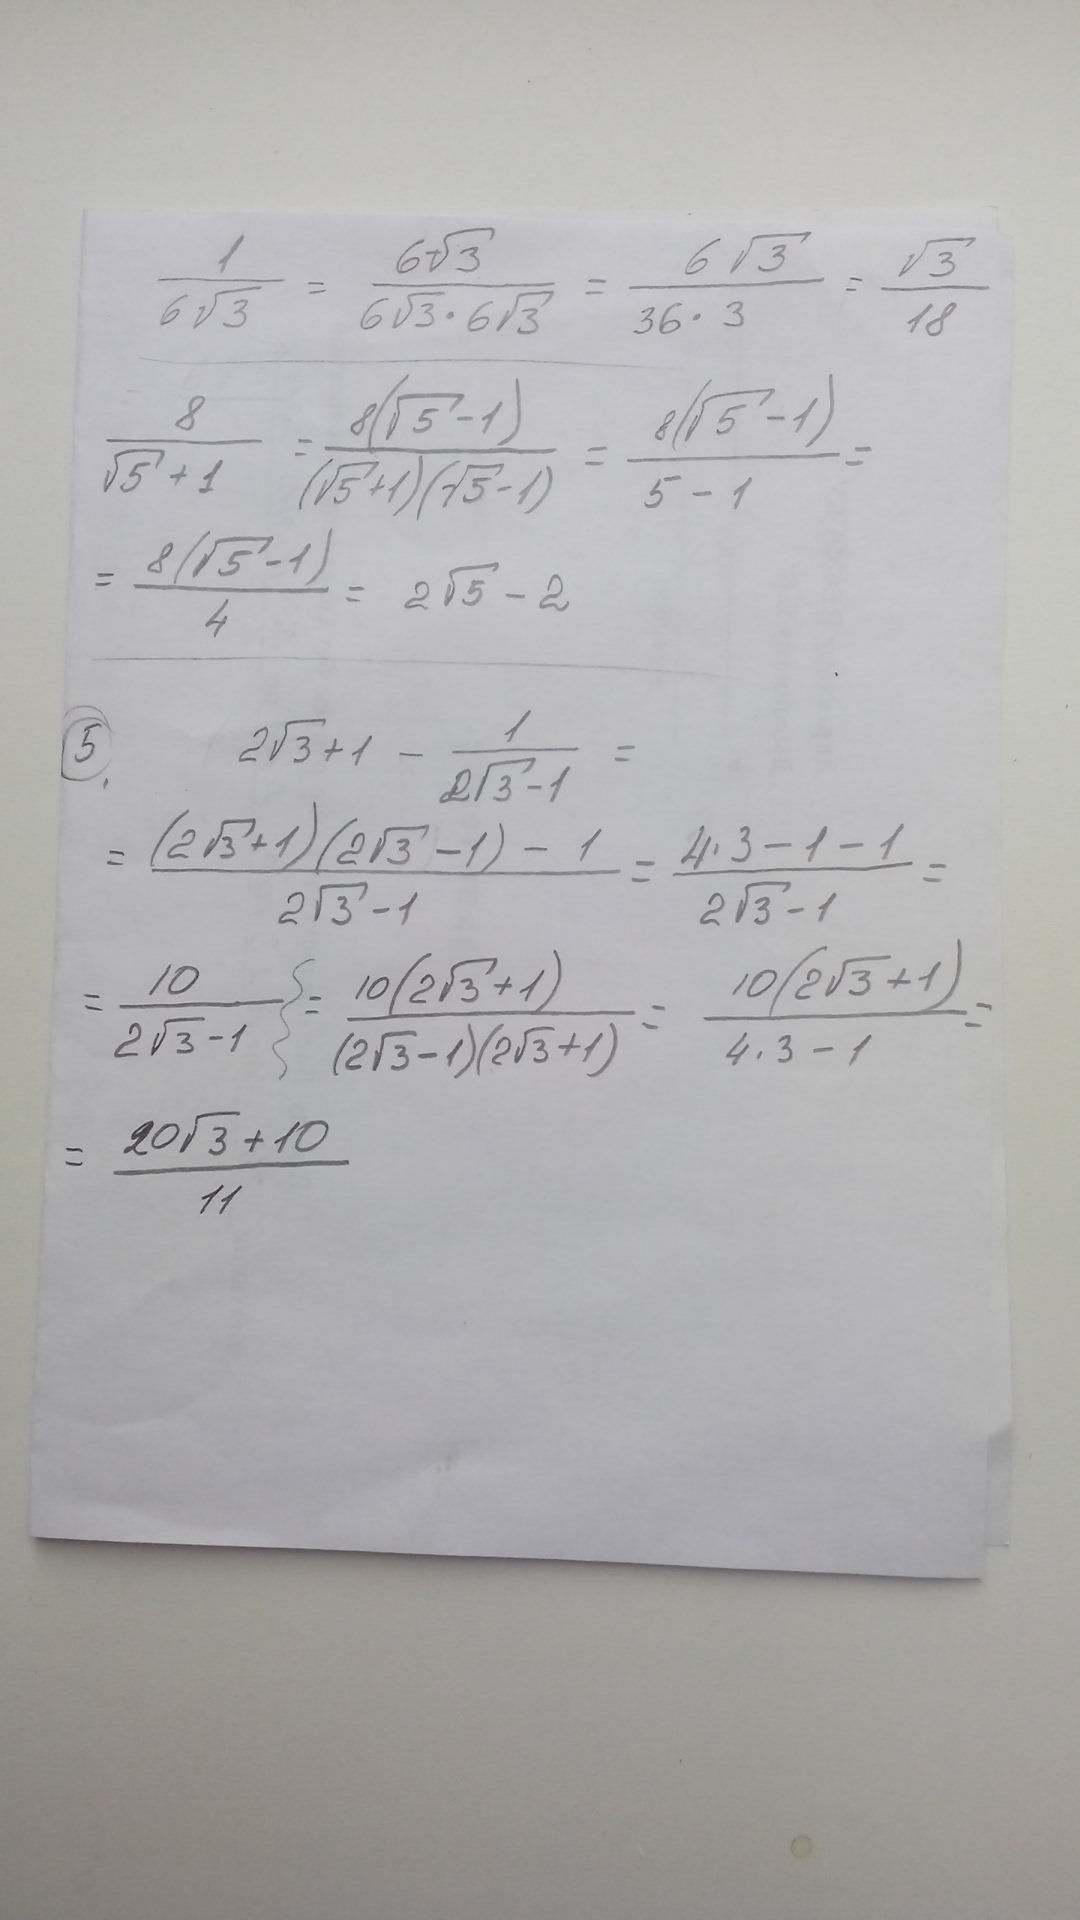 1/(6√3) = 6√3/(6√3·6√3) = 6√3/(36·3) = √3/18
8/(√5+1) = 8(√5-1)/((√5+1)(√5-1)) = 8(√5-1)/(5-1) =
= 8(√5-1)/4 = 2√5-2
5. 2√3+1 - 1/(2√3-1) =
= ((2√3+1)(2√3-1)-1)/(2√3-1) = (4·3-1-1)/(2√3-1) =
= 10/(2√3-1) = 10(2√3+1)/((2√3-1)(2√3+1)) = 10(2√3+1)/(4·3-1) =
= (20√3+10)/11